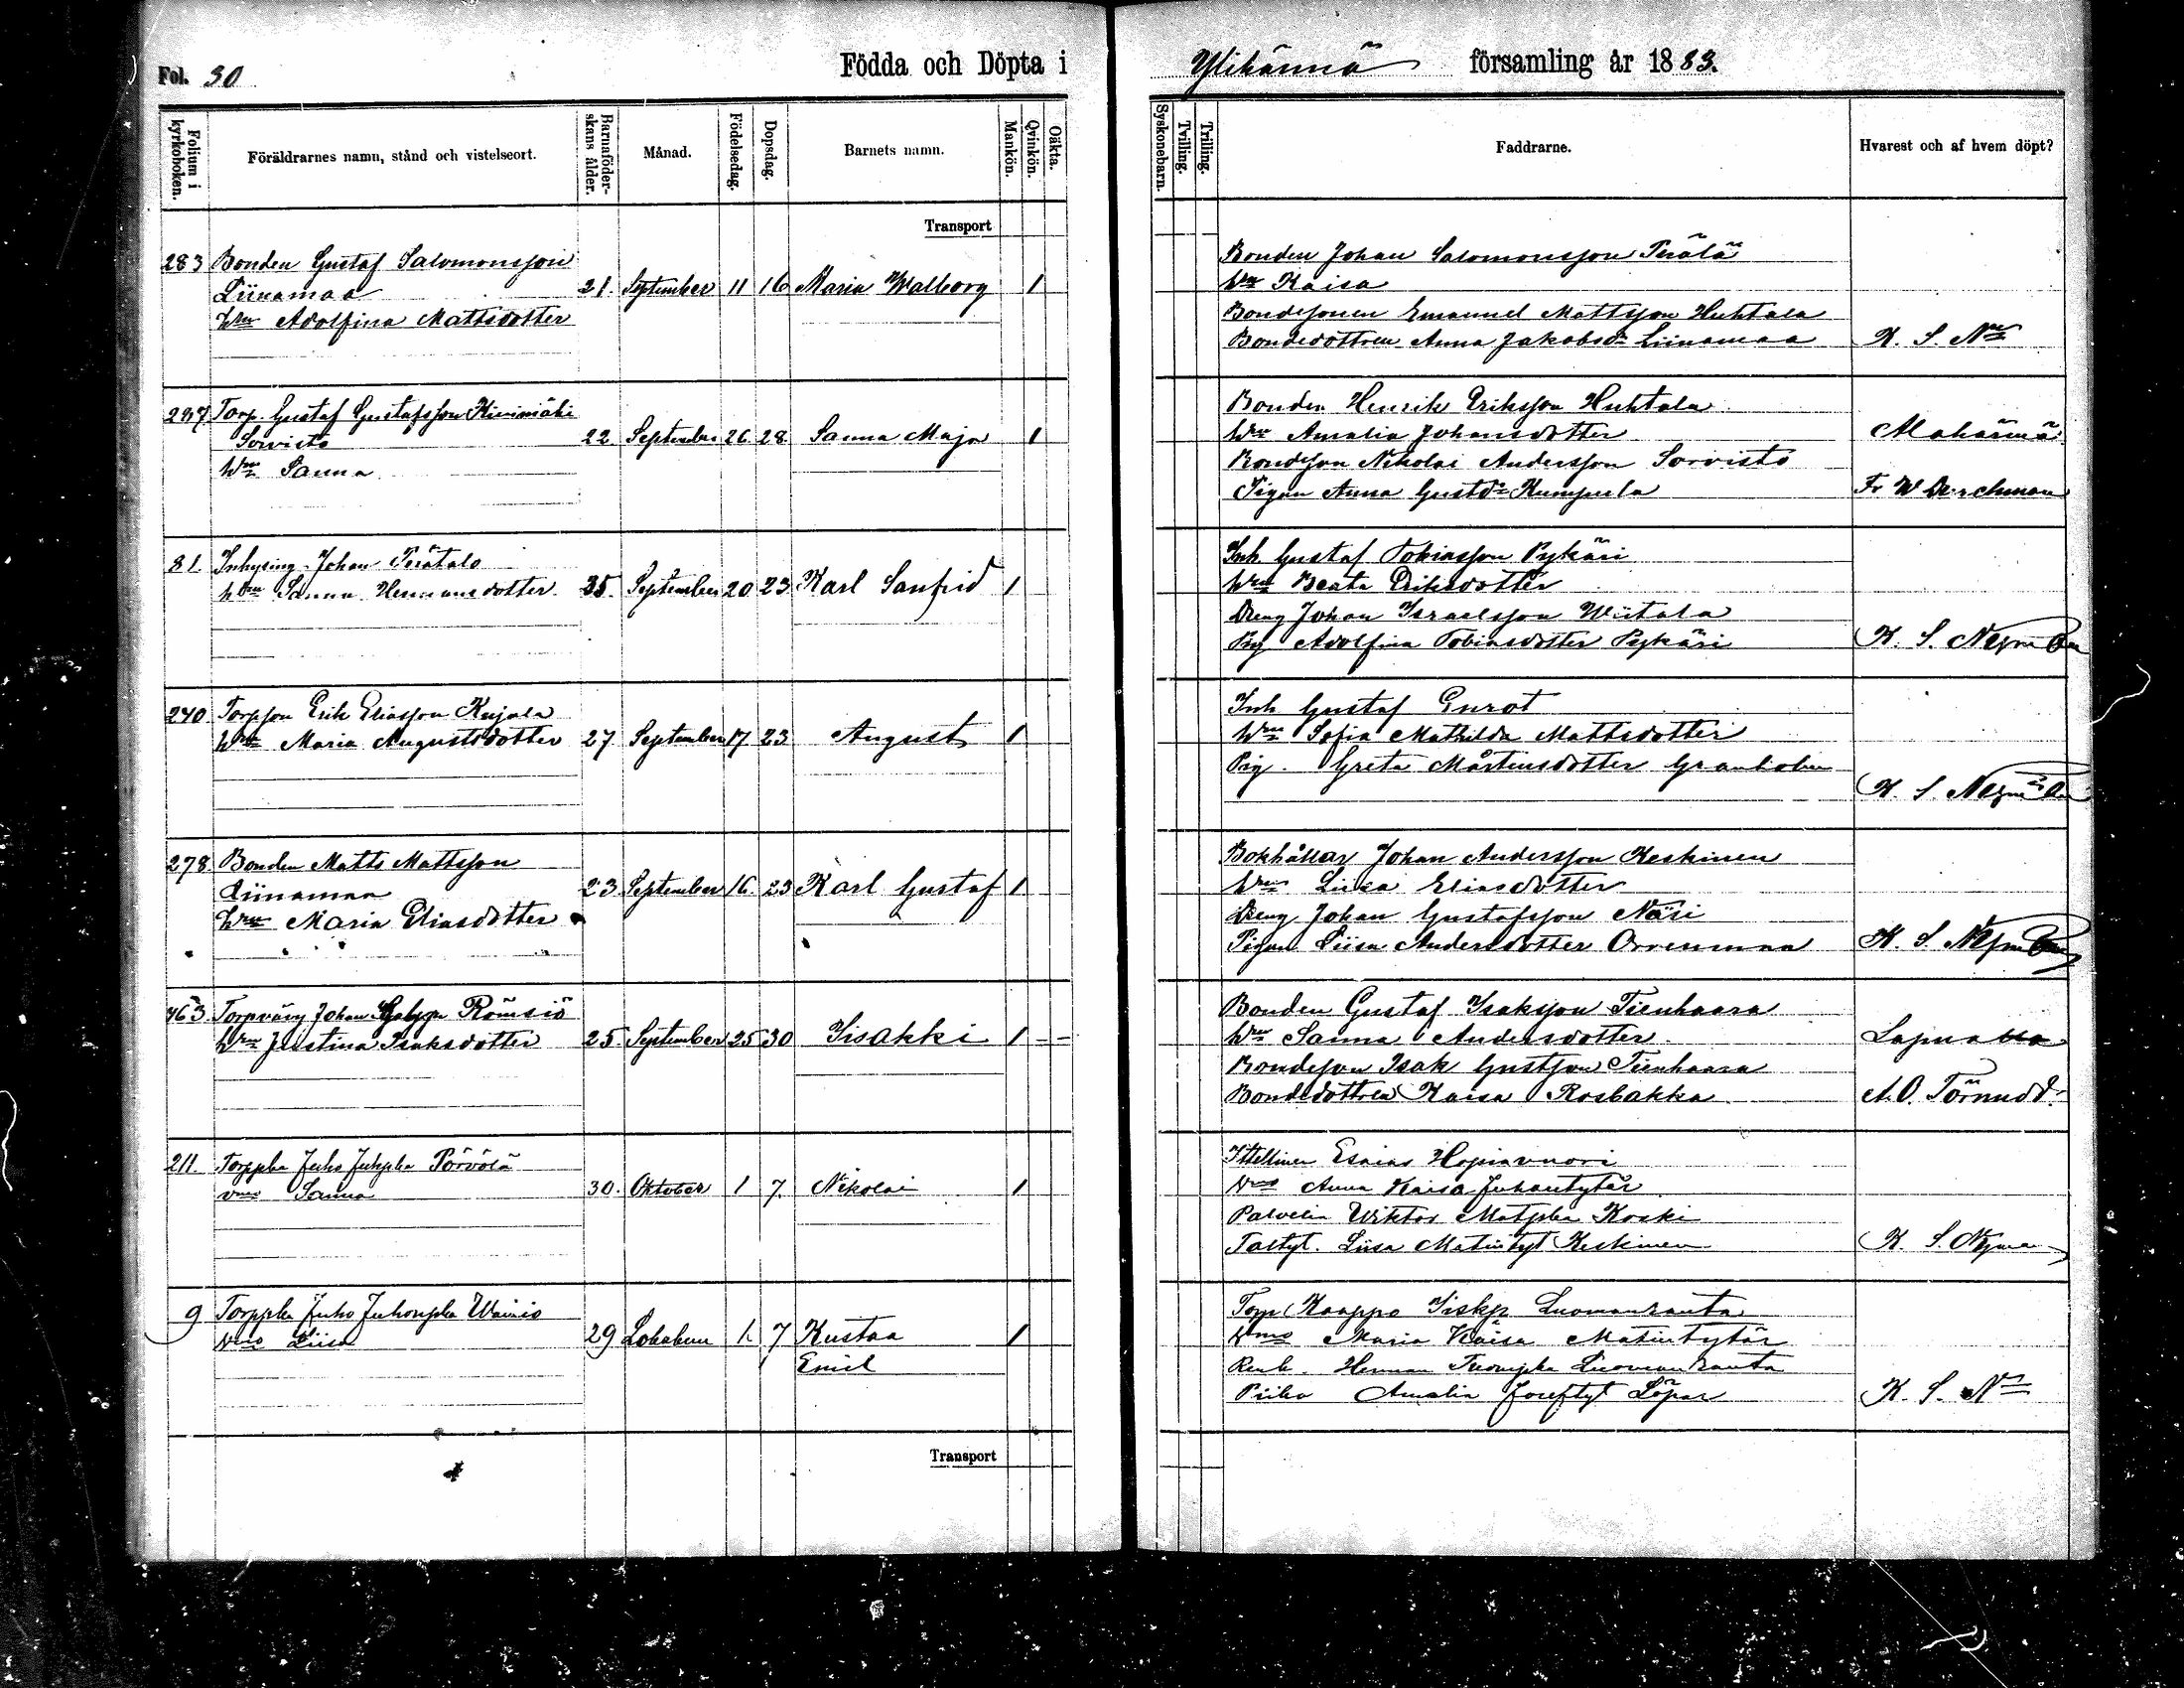 Fol. 30 Födda och Döpta i
Folium i kyrkoboken.
Föräldrarnes namn, stånd och vistelseort.
Barnaföderskans ålder.
Månad.
Födelsedag.
Dopsdag.
Barnets namn.
Mankön.
Qvinkön.
Oäkta.
Transport
283 Bonden Gustaf Salomonsson
Liinamaa 21. September 11 16 Maria Walborg 1
Hru Adolfina Mattsdotter
Torp. Gustaf Gustafsson Kivimäki
Sorvisto 22 September 26 28 Sanna Maja 1
Hru Sanna
81. Inhysing Johan Perätalo
hru Sanna Hermansdotter 35. September 20 23 Karl Sanfrid 1
240. Torpson Erik Eliasson Kujala
Hru Maria Augustsdotter 27 September 17 23 August 1
278. Bonden Matts Mattsson
Liinamaa 23 September 16. 23 Karl Gustaf 1
Hru Maria Eliasdotter
463. Torpväry Johan
Hru Justina Isaksdotter 25. September 25 30 Iisakki 1 - -
211. Torppka Juho Juhpka Pörvölä
vmo Sanna 30. Oktober 1 7. Nikolai 1
9 Torppka Juho Juhonpka Wainio
vmo Liisa 29 Lokakuu 1. 7 Kustaa 1
Emil
Transport
Ylihärmä församling år 1883.
Syskonebarn.
Tvilling.
Trilling.
Faddrarne.
Hvarest och af hvem döpt?
Bonden Johan Salomonsson Perälä
Hru Kaisa
Bondesonen Emanuel Mattsson Huhtala
Bondedottren Anna Jakobsdr Liinamaa K. S. Nn
Bonden Henrik Eriksson Huhtala
Hru Amalia Johansdotter Alahärmä
Bondeson Nikolai Andersson Sorvisto
Pigan Anna Gustdr Kumpula Fr W
Inh Gustaf Tobiasson Pykäri
Hru Beata Eriksdotter
Dreng Johan Israelsson Wiitala
Pig Adolfina Tobiasdotter Pykäri K. S. Nyman
Inh Gustaf Gurot
Hru Sofia Mathilda Mattsdotter
Pig. Greta Mårtensdotter Granholm
K. S. Nyman
Bokhållar Johan Andersson Keskinen
Hru Liisa Eliasdotter
Dreng Johan Gustafsson Näsi
Pigan Liisa Andersdotter Orrenmaa K. S. Nyman
Bonden Gustaf Isaksson Tienhaara
Hru Sanna Andersdotter Lapua
Bondeson Isak Gustsson Tienhaara
Bondedottren Kaisa Rosbakka A. O. Törnudd
Itsellinen Esaias Hopiavuori
Vmo Anna Kaisa Juhantytär
Palvelia Wiktor Matpka Koski
Taltyt. Liisa Matintyt Keskinen K. S. Nyman
Torp Kaappo Iiskp Luomanranta
Vmo Maria Kaisa Matintytär
Renk. Herman Luomanranta
Piika Amalia Joseftyt Löpar K. S. Nn